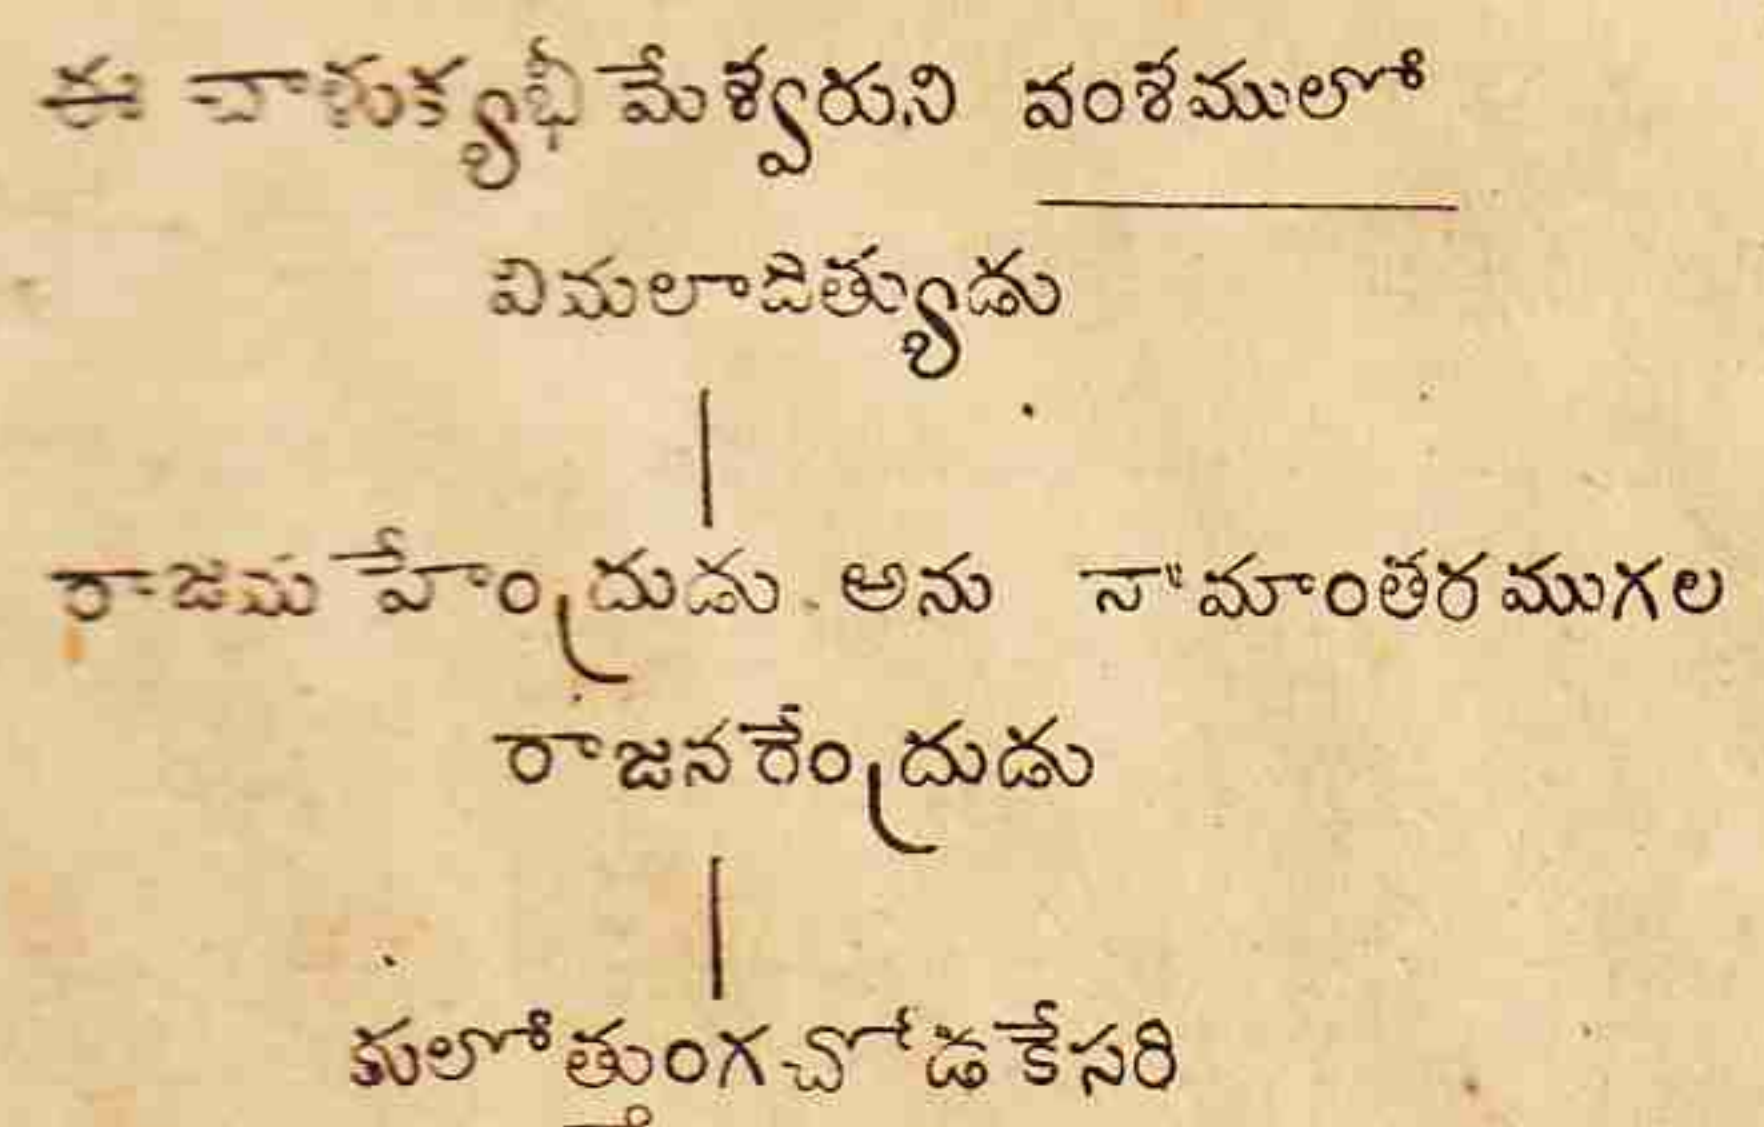 ఈ చాళుక్యభీమేశ్వరుని వంశేములో
విమలాదిత్యుడు
రాజమహేంద్రుడు అను నామాంతరముగల
రాజనరేంద్రుడు
కులోత్తుంగచోడకేసరి